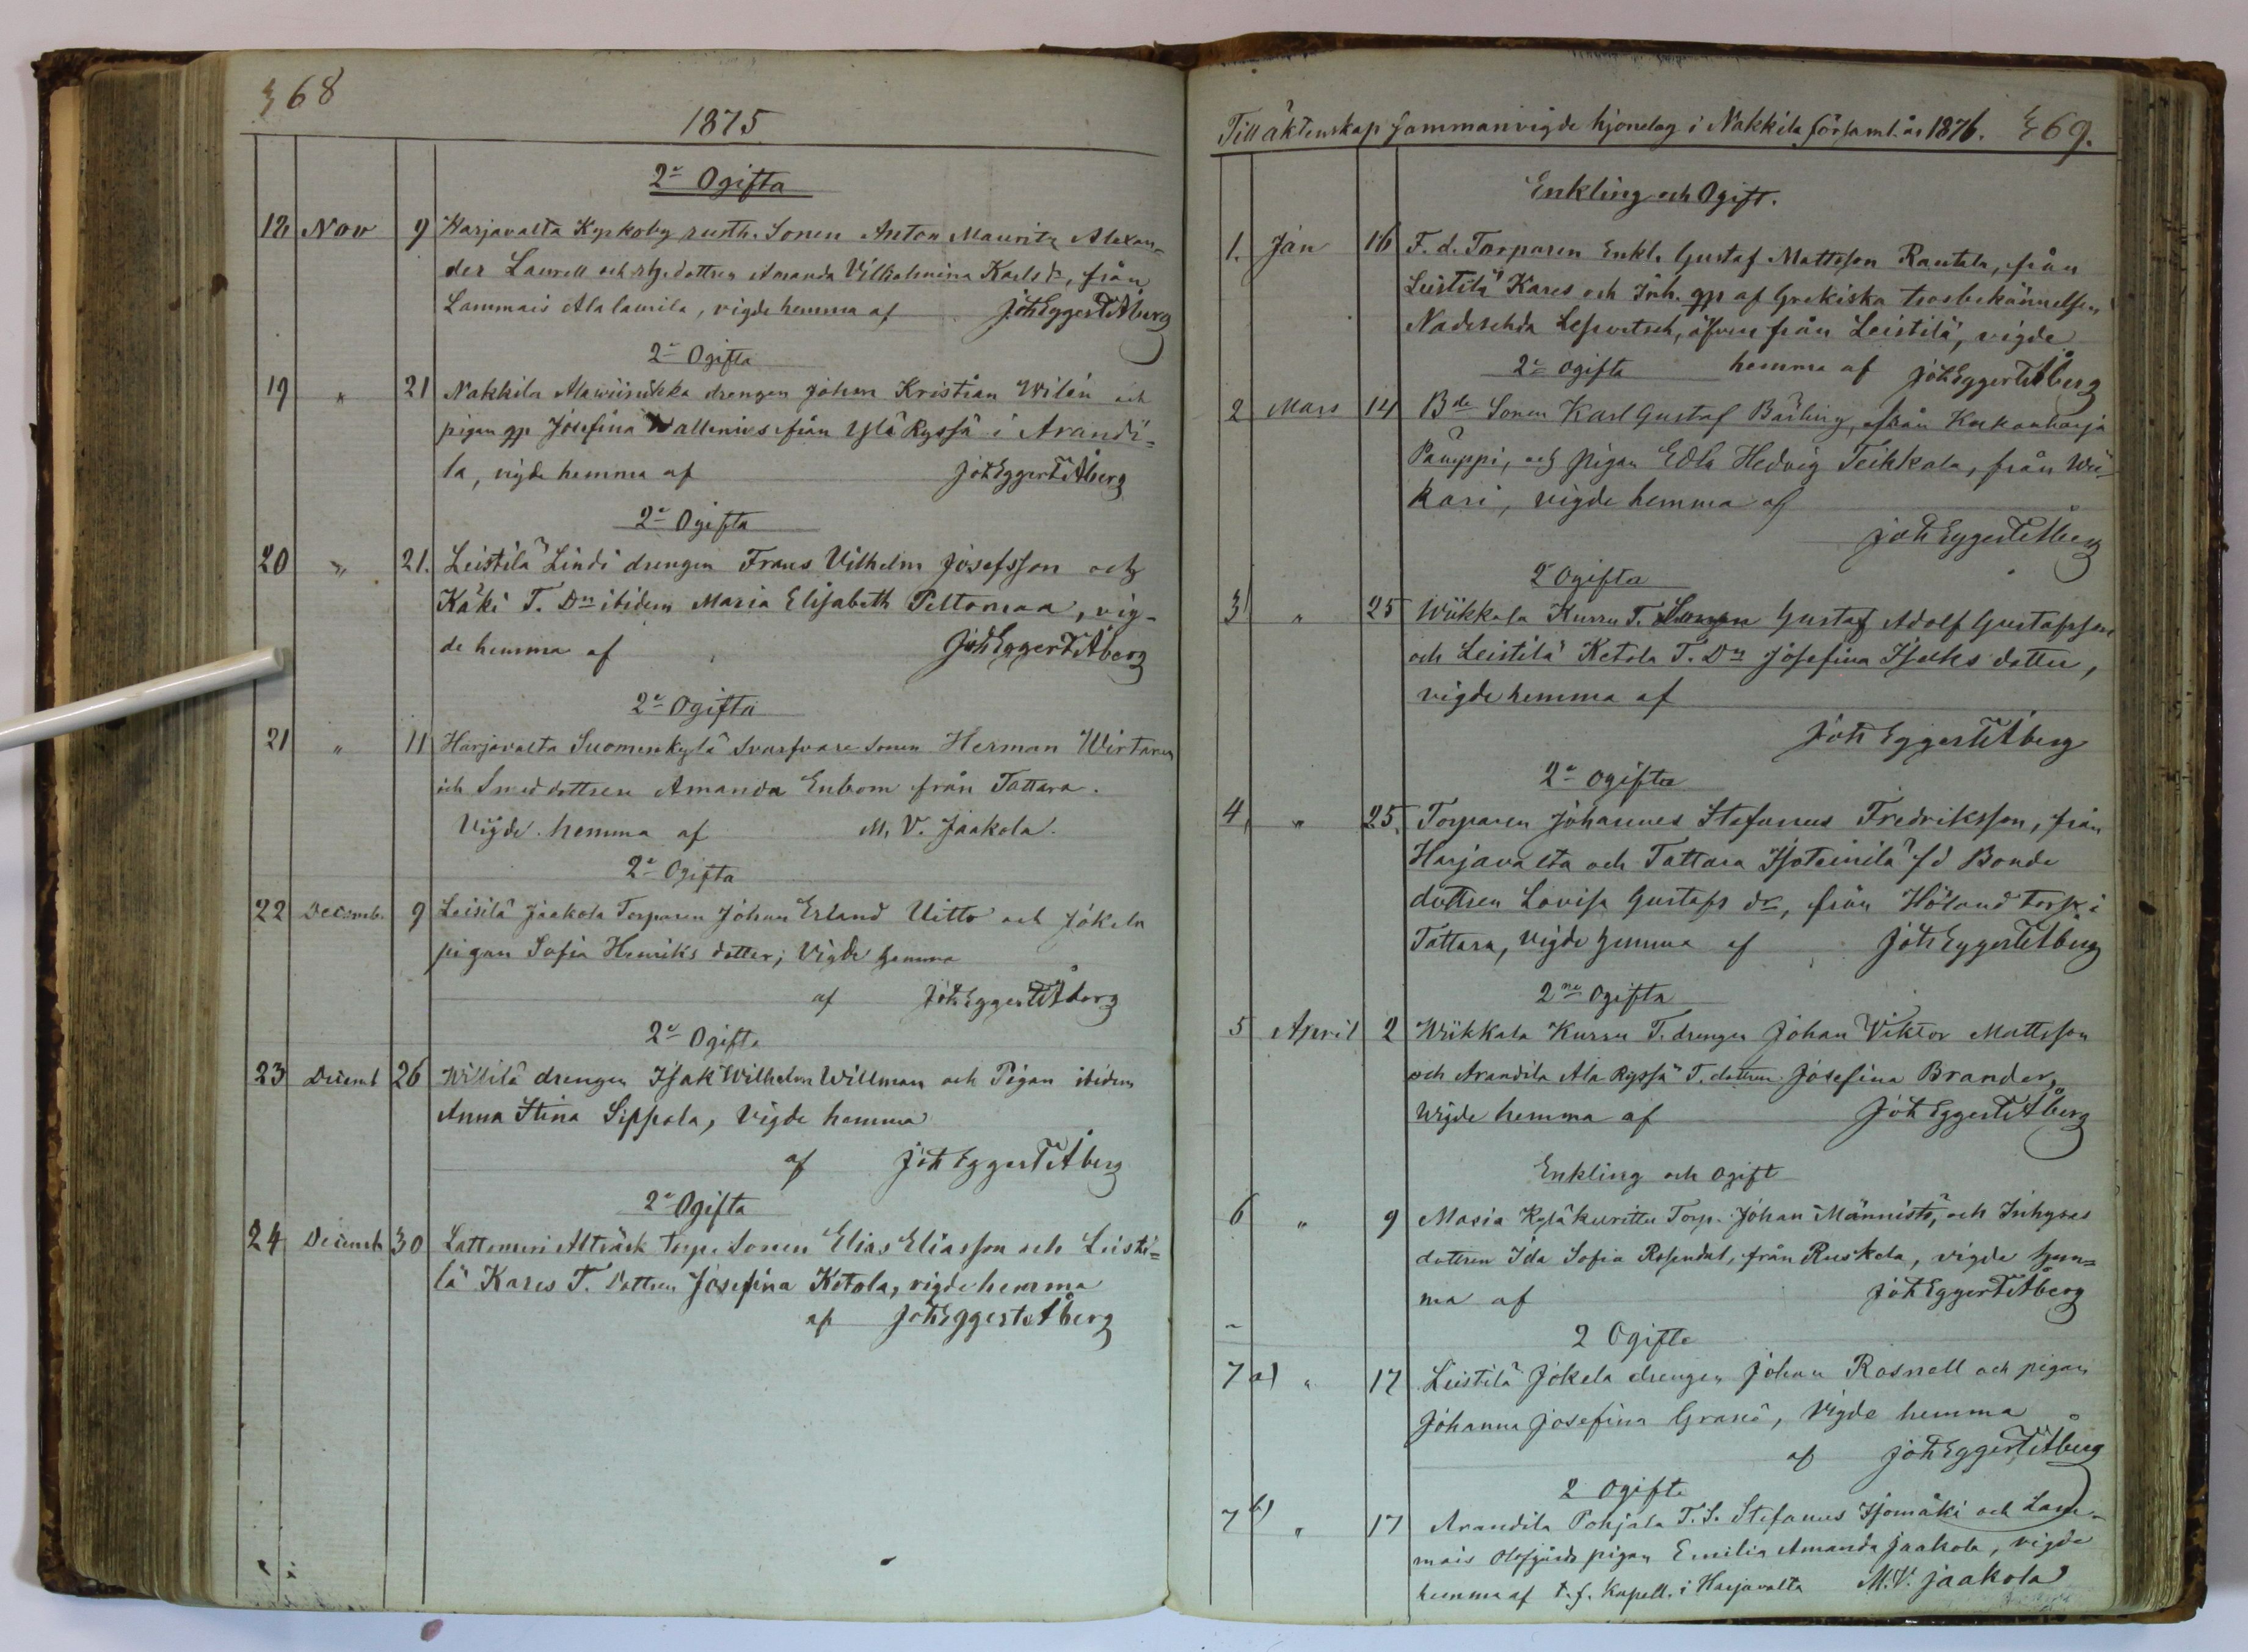 68
1875
2e Ogifta
18 Nov 9 Harjavalta Kyrkoby rusth. Sonen Anton Mauritz Alexan-
der Laurell och dottren Amanda Vilhelmina Karls dr, från
Lammais Alalaurila, vigde hemma af Joh Eggert Åberg
2e Ogifta
19 " 21 Nakkila drengen Johan Kristian Wilén och
pigan gp Josefina Wallenius från Ylä Ryssä i Arandi-
la, vigde hemma af Joh Eggert Åberg
2e Ogifta
20 " 21. Leistilä Lindi drengen Frans Vilhelm Josefsson och
Käki T. Dn ibidem Maria Elisabeth Peltomaa, vig-
de hemma af Joh Eggert Åberg
2e Ogifta
21 " 11 Harjavalta Suomenkylä Svarfvare Sonen Herman Wirtanen
och Smeddottren Amanda Enbom från Tattara.
Vigde hemma af M. V. Jaakola.
2e Ogifta
22 Decemb. 9 Leisilä Jaakola Torparen Johan Erland Uitto och Jokela
pigan Sofia Henriks dotter; Vigde hemma
af Joh Eggert Åberg
2e Ogifta
23 Decemb 26 Willilä drengen Isak Wilhelm Willman och Pigan ibidem
Anna Stina Sippola, Vigde hemma
af Joh Eggert Åberg
2e Ogifta
24 Decemb 30 Lattomeri Alträsk torp. Sonen Elias Eliasson och Leisti-
lä Kares T. Dottren Josefina Ketola, vigde hemma
af Joh Eggert Åberg
Till äktenskap sammanvigde hjonelag i Nakkila församl. år 1876. 69.
Enkling och Ogift.
1. Jan 16 F. d. Torparen Enkl. Gustaf Mattsson Rautala, från
Leistilä Kares och Inh. gp af Grekiska trosbekännelsen
Nadeschda, äfven från Leistilä, vigde
hemma af Joh Eggert Åberg
2e ogifta
2 Mars 14 Bde Sonen Karl Gustaf Bärling, från Kukonharja
Pämppi, och Pigan Edla Hedvig Teikkala, från Wii-
kari, vigde hemma af
Joh Eggert Åberg
2 Ogifta
3 " 25 Wiikkala Kurru T. Sonen Gustaf Adolf Gustafsson
och Leistilä Ketola T. Dn Josefina Isaks dotter,
vigde hemma af
Joh Eggert Åberg
2e ogifta
4 " 25. Torparen Johannes Stefanus Fredriksson, från
Harjavalta och Tattara Isoteinilä fd Bonde
dottren Lovisa Gustafs dr, från Höland torp i
Tattara, vigde hemma af Joh Eggert Åberg
2ne Ogifta
5 April 2 Wiikkala Kurru T. drengen Johan Viktor Mattsson
och Arandila Ala Ryssä T. dottren Josefina Brander,
Wigde hemma af Joh Eggert Åberg
Enkling och ogift
6 " 9 Masia Kyläkurittu Torp. Johan Männistö, och Inhyses
dottren Ida Sofia Rosendal, från Ruskela, vigde hem-
ma af Joh Eggert Åberg
2 Ogifta
7 a) " 17 Leistilä Jokela drengen Johan Rosnell och pigan
Johanna Josefina Granö, Vigde hemma
af Joh Eggert Åberg
2 Ogifta
7 b) " 17 Arandila Pohjala T. S. Stefanus Isomäki och Lam-
mais Olofgårds pigan Emilia Amanda Jaakola, vigde
hemma af t. f. Kapell. i Harjavalta M. V. Jaakola